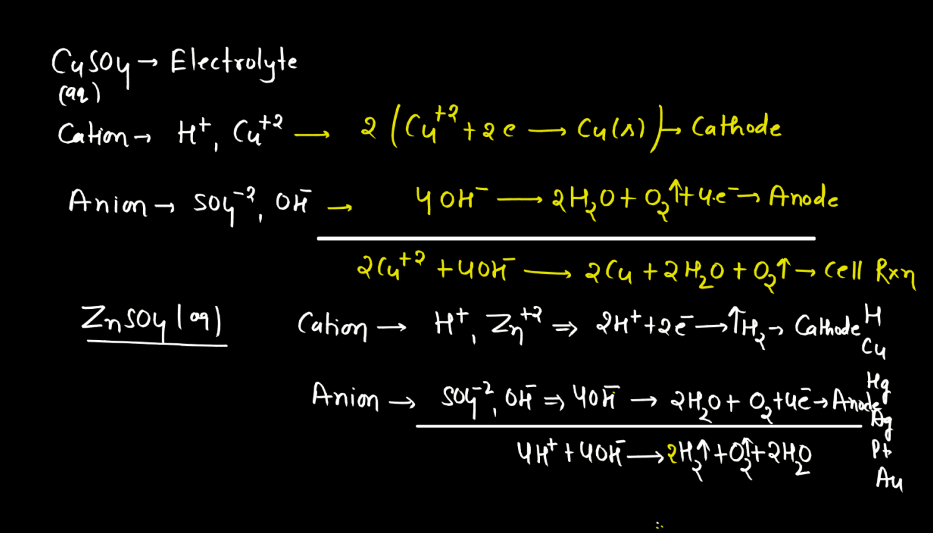 CuSO4 → Electrolyte
(aq)
Cation → H⁺, Cu⁺² → 2 (Cu⁺² + 2e → Cu(s)) → Cathode
Anion → SO4⁻², OH⁻ → 4OH⁻ → 2H₂O + O₂↑ + 4e⁻ → Anode
2Cu⁺² + 4OH⁻ → 2Cu + 2H₂O + O₂↑ → Cell Rxn
ZnSO4(aq) Cation → H⁺, Zn⁺² ⇒ 2H⁺ + 2e⁻ → ↑H₂ → Cathode
Anion → SO4⁻², OH⁻ ⇒ 4OH⁻ → 2H₂O + O₂ + 4e⁻ → Anode
4H⁺ + 4OH⁻ → 2H₂↑ + O₂↑ + 2H₂O
H
Cu
Hg
Ag
Pt
Au